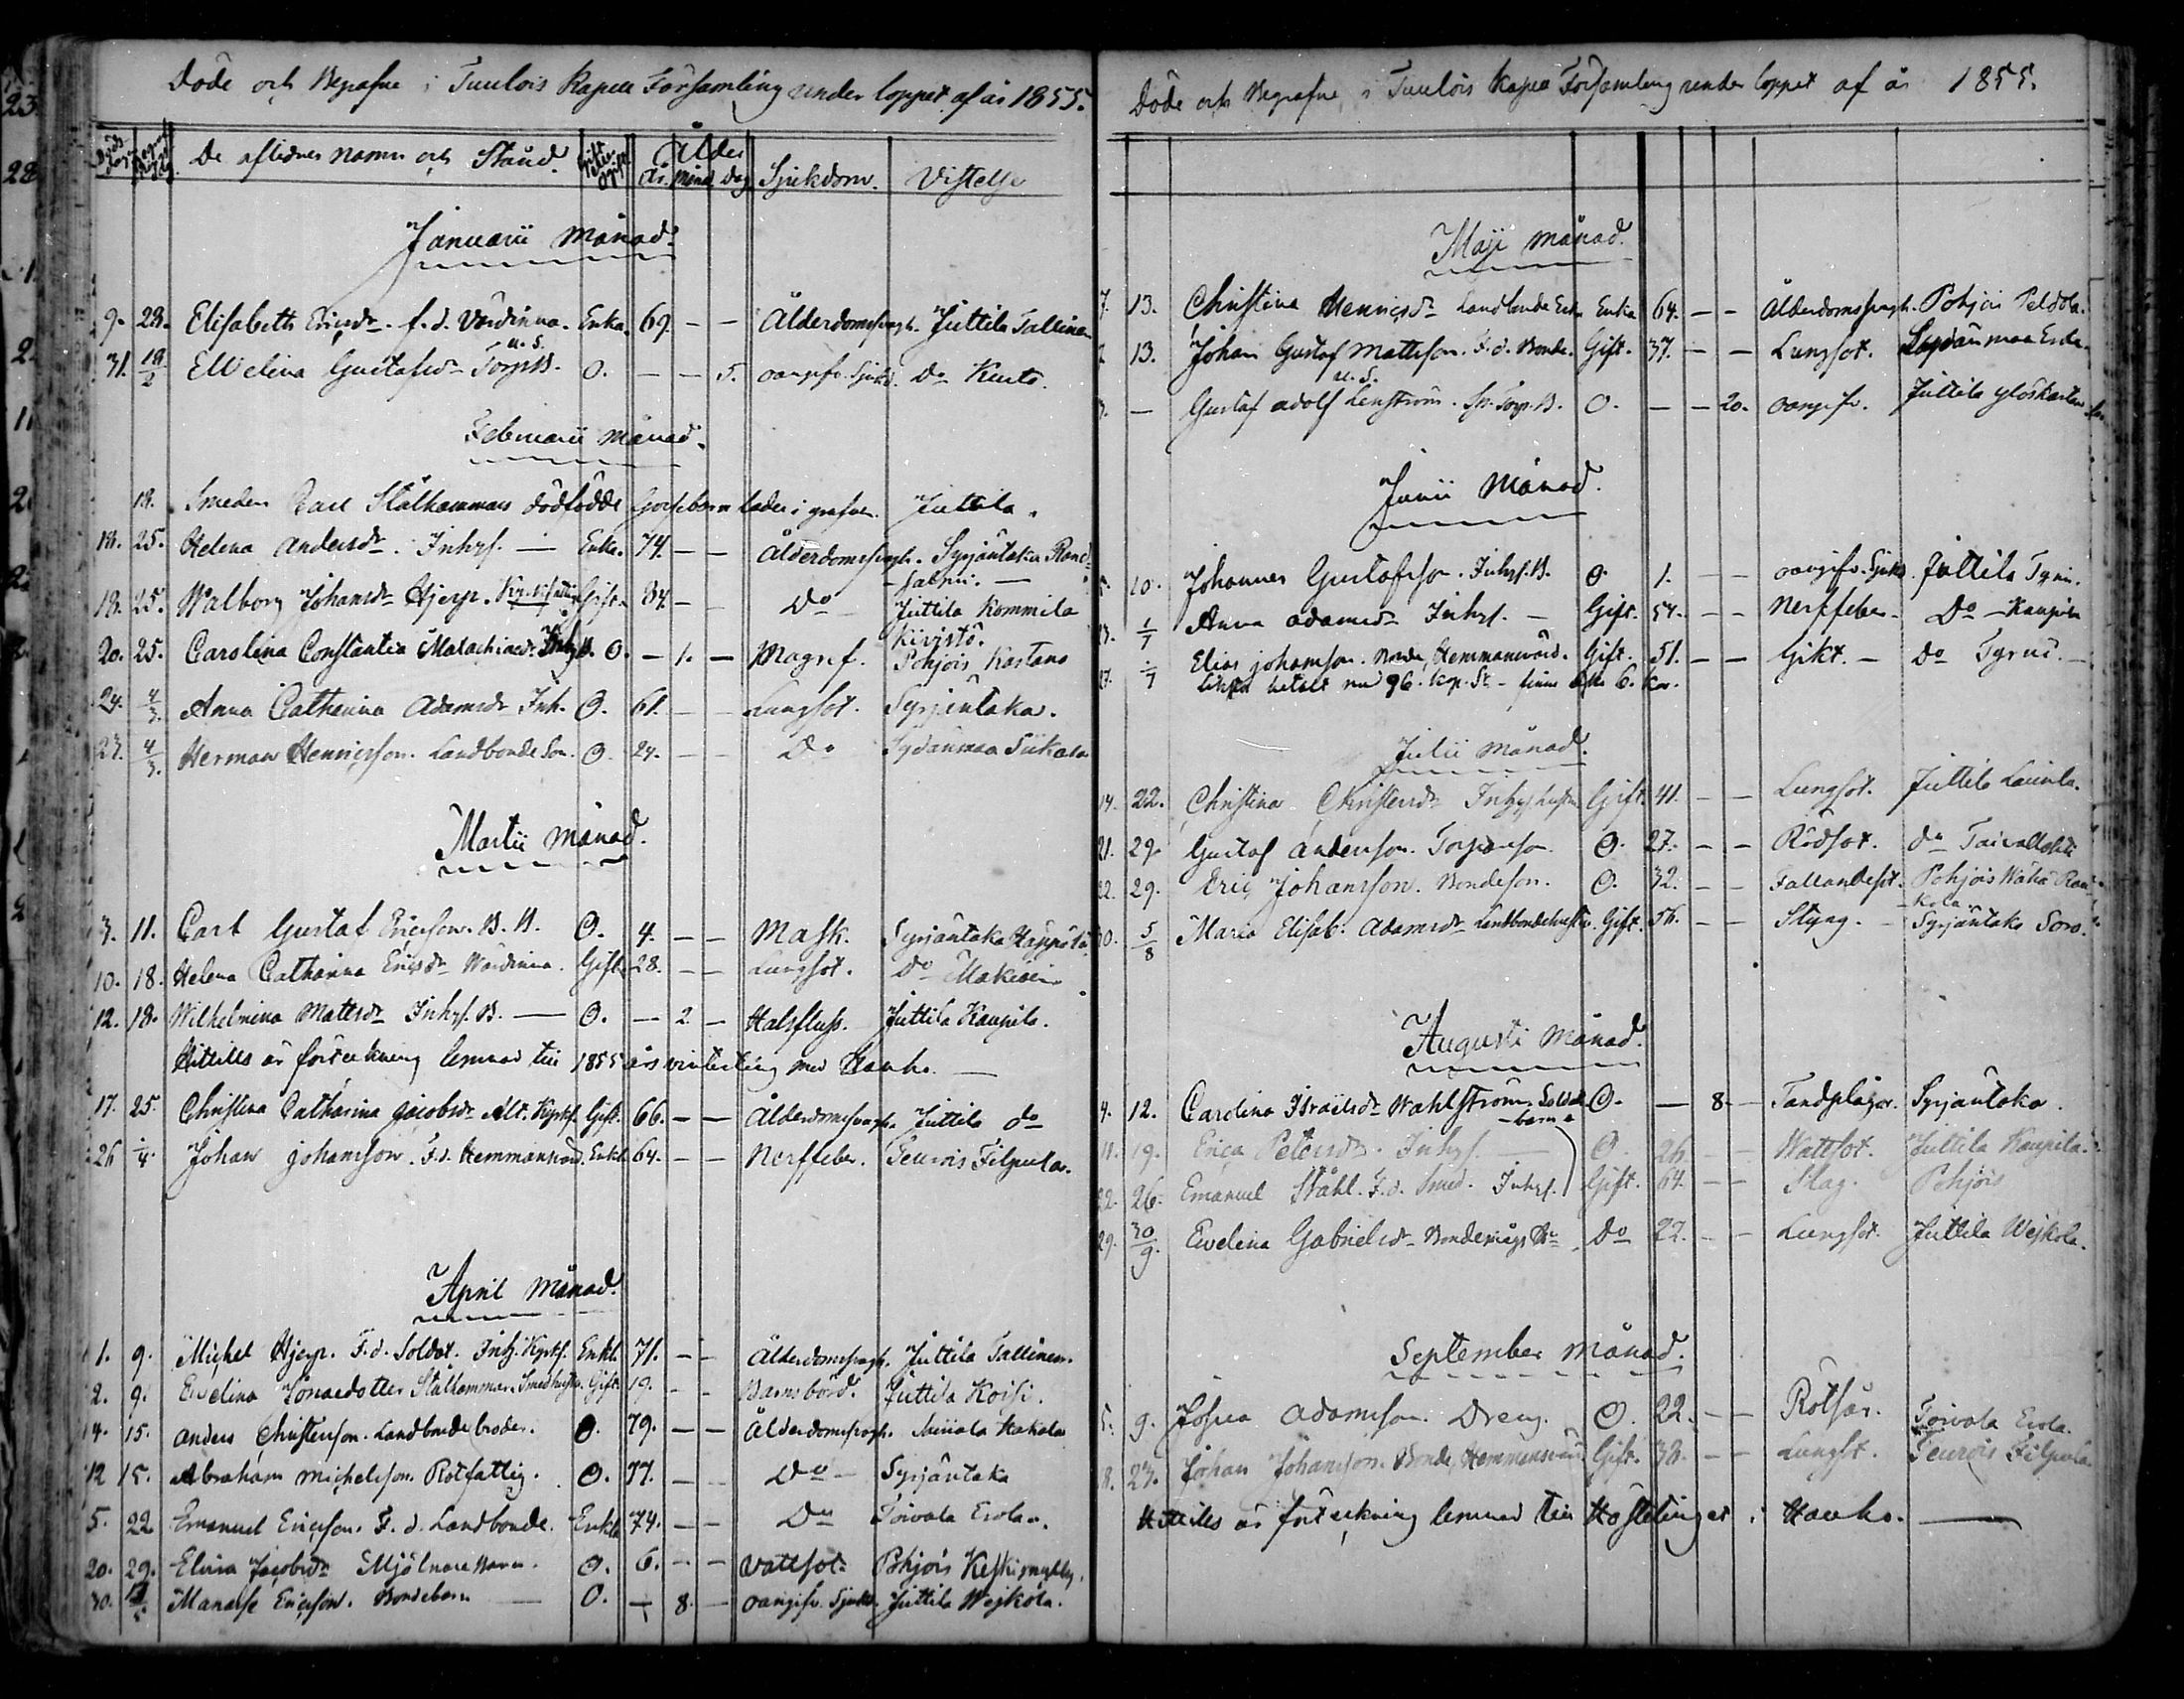 Döde och Begrafne i Tuulois Kapell Församling under loppet af år 1855.
Döds dag Begraf. dag De aflidnes namn och Stånd. Gift eller ogift Ålder år. månad Dag Sjukdom. Vistelse
Januarii Månad.
9. 28. Elisabeth Ericsdr. f.d. Värdinna. Enka. 69. — — Ålderdomssvagh. Juttila Tallinen
31. 18/2 Evelina Gustafsdr Torp.B. u.ä. O. — — 5. oangifv. Sjukd. Do Kurto.
Februarii Månad.
18. Smeden Carl Stålhammars dödfödde Gossebarn lades i grafven. Juttila.
18. 25. Helena Andersdr. Inhys. — Enka. 74. — — Ålderdomssvagh. Syrjäntaka
18. 25. Walborg Johansdr Hjerp. Gift. 84. — — Do Juttila Kommila
20. 25. Carolina Constantia Malachiaedr O. — 1. — Magref. Pohjois Kartano
24. 4/3. Anna Catharina Adamsdr Inh. O. 61. — — Lungsot. Syrjäntaka.
23. 4/3. Herman Henricsson. Landbonde Son. O. 24. — — Do Sydänmaa
Martii Månad.
3. 11. Carl Gustaf Ericsson. B. B. O. 4. — — Mask. Syrjäntaka
10. 18. Helena Catharina Ericsdr Wärdinna. Gift. 28. — — Lungsot. Do
12. 18. Wilhelmina Mattsdr Inhys. B. — O. — 2 — Halsfluss. Juttila Kaupila.
Hittills är förteckning lemnad till 1855 års vinterting med Hauho. —
17. 25. Christina Catharina Jacobsdr Gift. 66. — — Ålderdomssvagh. Juttila do
26 1/4. Johan Johansson. F.d. Hemmansvärd. Enkl. 64. — — Nerffeber. Teurois Filpula.
April Månad.
1. 9. Michel Hjerp. F.d. Soldat. Enkl. 71. — — Ålderdomssvagh. Juttila Tallinen.
2. 9. Evelina Jonaedotter Stålhammar. Smedhustr. Gift. 19. — — Barnsbörd. Juttila Koisi.
14. 15. Anders Christersson. Landbonde broder. O. 79. — — Ålderdomssvagh. Hakala
12 15. Abraham Michelsson. Rotfattig. O. 77. — — Do — Syrjäntaka
5. 22 Emanuel Ericsson. F. d. Landbonde. Enkl 74. — — Do Toivala Erola.
20. 29. Elina Jacobsdr Mjölnare Barn. O. 6. — — Vattsot Pohjois Keskismylly.
30. Manasse Ericsson. Bondebarn O. — 8 — oangifv. Sjukd. Juttila Wejkola.
Döde och Begrafne i Tuulois Kapell Församling under loppet af år 1855.
Maji månad.
7. 13. Christina Henricsdr Landbonde Enka Enka 64. — — Ålderdomssvagh. Pohjois Peldola.
13. Johan Gustaf Mattsson. F.d. Bonde. Gift. 37. — — Lungsot. Sydänmaa Erola.
— Gustaf Adolf Lenström. Torp. B. u.ä. O. — — 20. oangifv. Juttila
Junii Månad.
10. Johannes Gustafsson. Inhys. B. O. 1. — — oangifv. Sjukd. Juttila Tyrni.
1/7 Anna Adamsdr Inhys. — Gift. 54. — — Nerffeber — Do — Kaupila
27. 1/7 Elias Johansson. Bonde, Hemmansvärd. Gift. 51. — — Gikt. — Do Tyrni. —
betalt med 96. kop. Sr
Julii månad.
14. 22. Christina Christersdr Inhys hustru Gift. 41. — — Lungsot. Juttila Laurila.
21. 29. Gustaf Andersson. Torpareson. O. 27. — — Rödsot. do
22. 29. Eric Johansson. Bondeson. O. 32. — — Fallandesot. Pohjois
30. 5/8 Maria Elisab. Adamsdr Landbondehustru. Gift. 56. — — Styng. — Syrjäntaka
Augusti Månad.
4. 12. Carolina Israelsdr Wahlström. Soldat barn. O. — 8. — Tandplågor. Syrjäntaka.
11. 19. Erica Petersdr. Inhys. O. 26. — — Wattsot. Juttila Kaupila.
22. 26. Emanuel Ståhl. F.d. Smed. Inhys. Gift. 64. — — Slag. Pohjois
29. 30/9. Evelina Gabrielsdr Do 22. — — Lungsot. Juttila Wejkola.
September Månad.
5. 9. Josua Adamsson. Dreng. O. 22. — — Rötsår. Toivala Erola.
18. 23. Johan Johansson. Bonde, Hemmansvärd Gift. 38. — — Lungsot. Teurois Filpula.
Hittills är förteckning lemnad till Hösttinget i Hauho. —